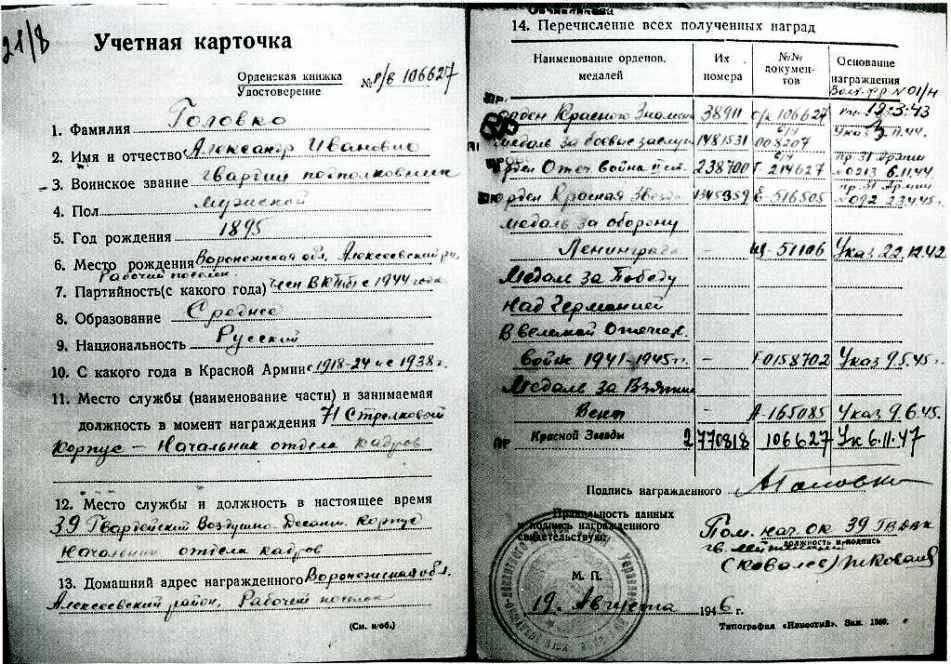 21/8
Учетная карточка
Орденская книжка
Удостоверение
№ о/в 106627
1. Фамилия Головко
2. Имя и отчество Александр Иванович
3. Воинское звание Гвардии подполковник
4. Пол мужской
5. Год рождения 1895
6. Место рождения Воронежская обл. Алексеевский р-н,
Рабочий поселок.
7. Партийность(с какого года) член ВКП(б) с 1944 года
8. Образование Среднее
9. Национальность Русский
10. С какого года в Красной Армии с 1918-24 и с 1938 г.
11. Место службы (наименование части) и занимаемая
должность в момент награждения 71 Стрелковый
корпус — Начальник отдела кадров
12. Место службы и должность в настоящее время
39 Гвардейский Воздушно-Десант. корпус
Начальник отдела кадров
13. Домашний адрес награжденного Воронежская обл.
Алексеевский район, Рабочий поселок
(См. н/об.)
14. Перечисление всех полученных наград
Наименование орденов, медалей
Их номера
№№ документов
Основание награждения
Орден Красного Знамени 38911 о/к 106627 12.3.43
Медаль за боевые заслуги 1481531 008207 Указ
Орден Отеч. война 238700 Г 214627 пр. 31 Армии №0213 6.11.44
Орден Красная Звезда 1345959 Е-516505 пр. 31 Армии №092 23.4.45
Медаль за оборону
Ленинграда – 51106 Указ 22.12.42
Медаль за Победу
над Германией
в великой Отечес.
войне 1941-1945 гг. – Г 0158702 Указ 9.5.45г.
Медаль за Взятие
Вены А-165085 Указ 9.6.45г.
ПР Красной Звезды 2770818 106627 Ук 6.11.47
Подпись награжденного АГоловко
Правильность данных
и подпись награжденного
свидетельствую:
Пом. нач. ОК 39 ГВДК
должность и подпись
(Ковалев)
М. П.
19. Августа 1946 г.
Типография «Известий». Зак. 1560.